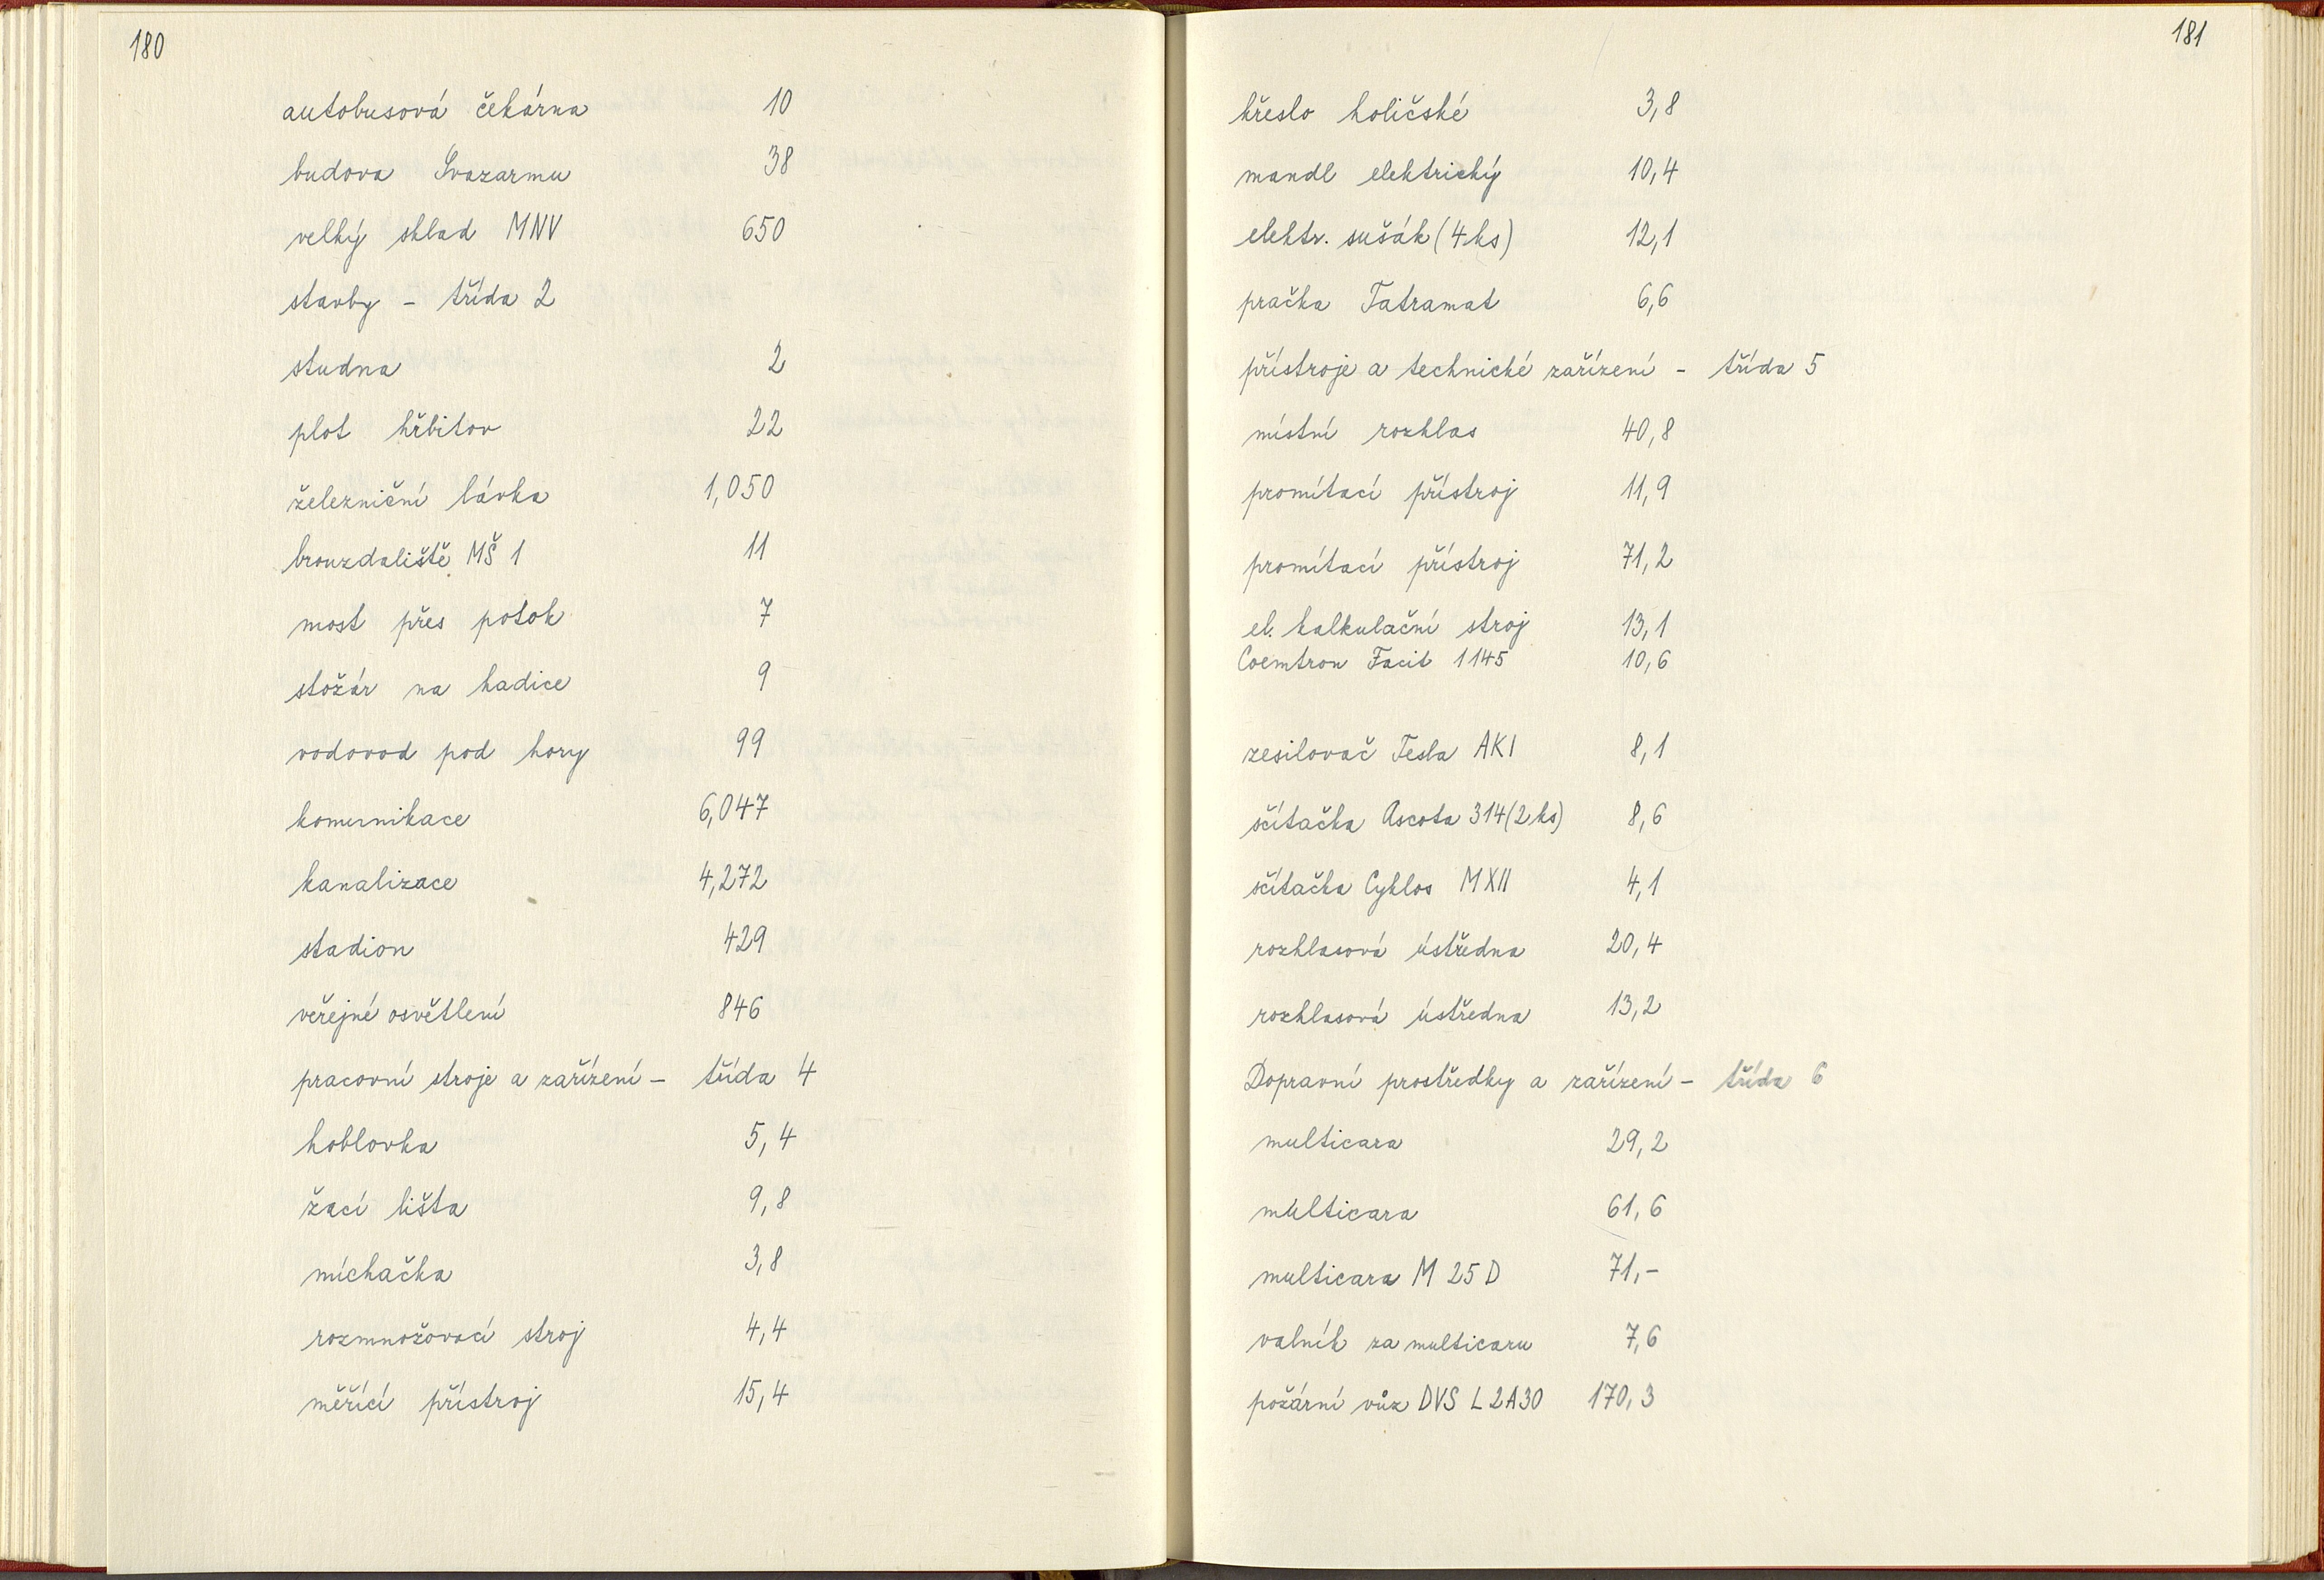 180
autobusová čekárna 10
budova Svazarmu 38
velký sklad MNV 650
stavby - třída 2
studna 2
plot hřbitov 22
železniční lávka 1,050
brouzdaliště MŠ 1 11
most přes potok 7
stožár na hadice 9
vodovod pod hory 99
komunikace 6,047
kanalizace 4,272
stadion 429
veřejné osvětlení 846
pracovní stroje a zařízení - třída 4
hoblovka 5,4
žací lišta 9,8
míchačka 3,8
rozmnožovací stroj 4,4
měřící přístroj 15,4
181
křeslo holičské 3,8
mandl elektrický 10,4
elektr. sušák (4 ks) 12,1
pračka Tatramat 6,6
přístroje a technické zařízení - třída 5
místní rozhlas 40,8
promítací přístroj 11,9
promítací přístroj 71,2
el. kalkulační stroj 13,1
Coemtron Facit 1145 10,6
zesilovač Tesla AKI 8,1
sčítačka Ascota 314 (2 ks) 8,6
sčítačka Cyklos MXII 4,1
rozhlasová ústředna 20,4
rozhlasová ústředna 13,2
Dopravní prostředky a zařízení - třída 6
multicara 29,2
multicara 61,6
multicara M 25 D 71,-
valník za multicaru 7,6
požární vůz DVS L 2A30 170,3